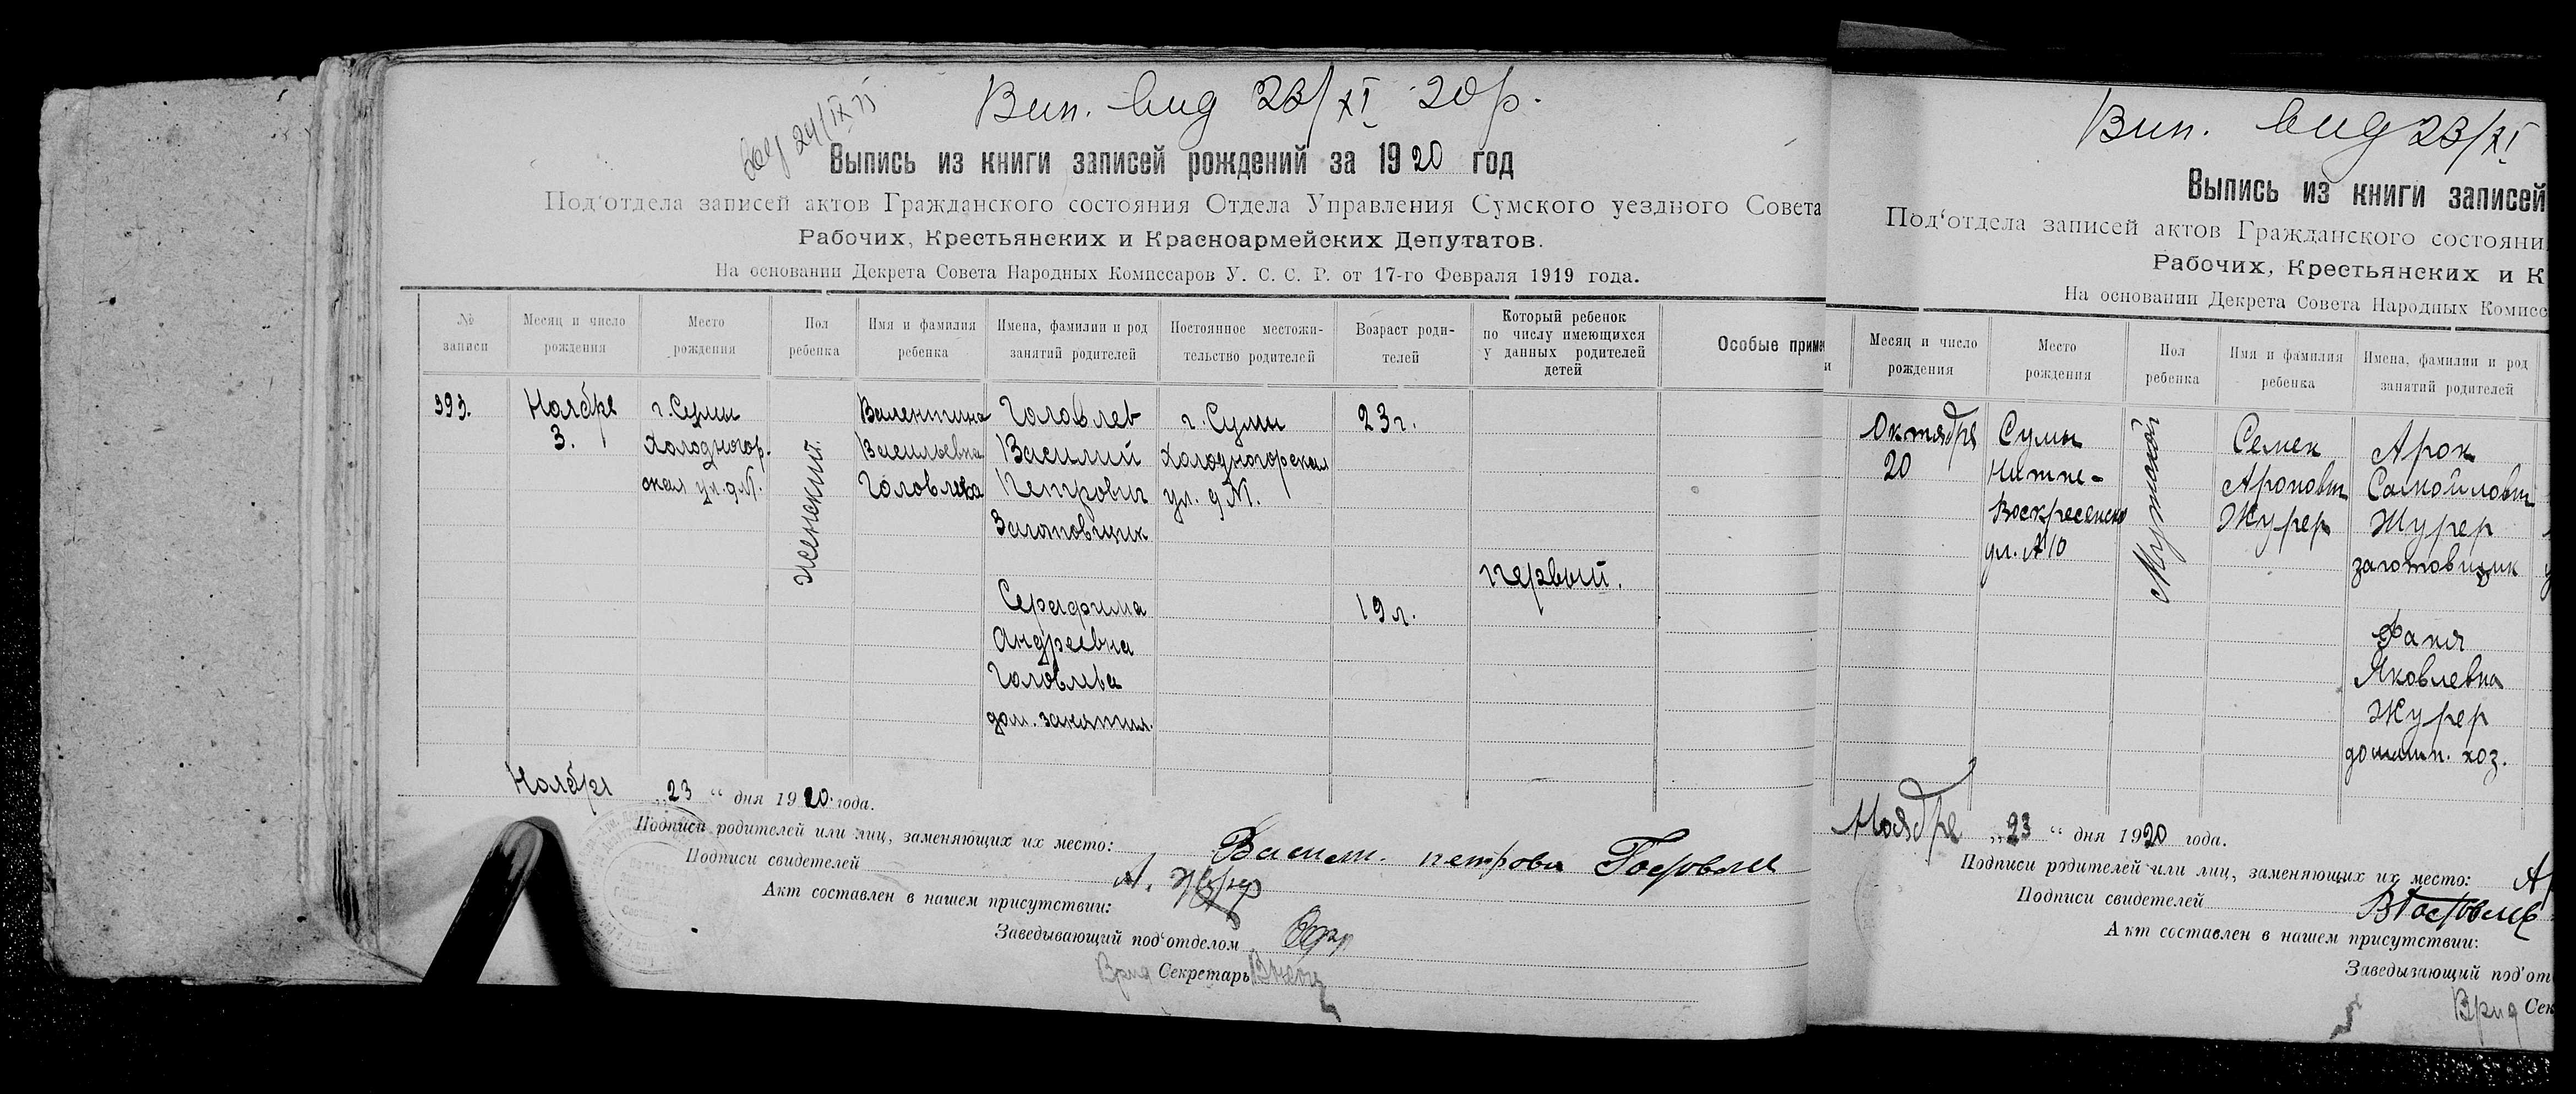 Вип. вид 23/XI 20 р.
24/IX
Выпись из книги записей рождений за 1920 год
Под‘отдела записей актов Гражданского состояния Отдела Управления Сумского уездного Совета
Рабочих, Крестьянских и Красноармейских Депутатов.
На основании Декрета Совета Народных Комиссаров У. С. С. Р. от 17-го Февраля 1919 года.
№ записи
Месяц и число рождения
Место рождения
Пол ребенка
Имя и фамилия ребенка
Имена, фамилии и род занятий родителей
Постоянное местожи-
тельство родителей
Возраст роди-
телей
Который ребенок
по числу имеющихся
у данных родителей
детей
Особые приме
393.
Ноября
3.
г. Сумы
Холодногор-
ская ул. д №.
женский.
Валентина
Васильевна
Головлева
Головлев
Василий
Петрович
Заготовщик
Серафима
Андреевна
Головлева
дом. занятия.
г. Сумы
Холодногорская
ул. д №.
23 г.
19 л.
первый.
Ноября „23“ дня 1920 года.
Подписи родителей или лиц, заменяющих их место: Василий петрович Головлев
Подписи свидетелей А. Журер
Акт составлен в нашем присутствии:
Заведывающий под‘отделом
Врид Секретарь
Вип. вид 23/XI
Выпись из книги записей
Под‘отдела записей актов Гражданского состояни
Рабочих, Крестьянских и К
На основании Декрета Совета Народных Комисс
и
Месяц и число
рождения
Место
рождения
Пол
ребенка
Имя и фамилия
ребенка
Имена, фамилии и род
занятий родителей
Октября
20
Сумы
Нижне-
Воскресенск
ул. № 10
Мужской
Семен
Аронович
Журер
Арон
Самойлович
Журер
заготовщик
Фаня
Яковлевна
Журер
домашн. хоз.
Ноября „23“ дня 1920 года.
Подписи родителей или лиц, заменяющих их место: А
Подписи свидетелей В Головлев
Акт составлен в нашем присутствии:
Заведывающий под‘от
Врид Сек